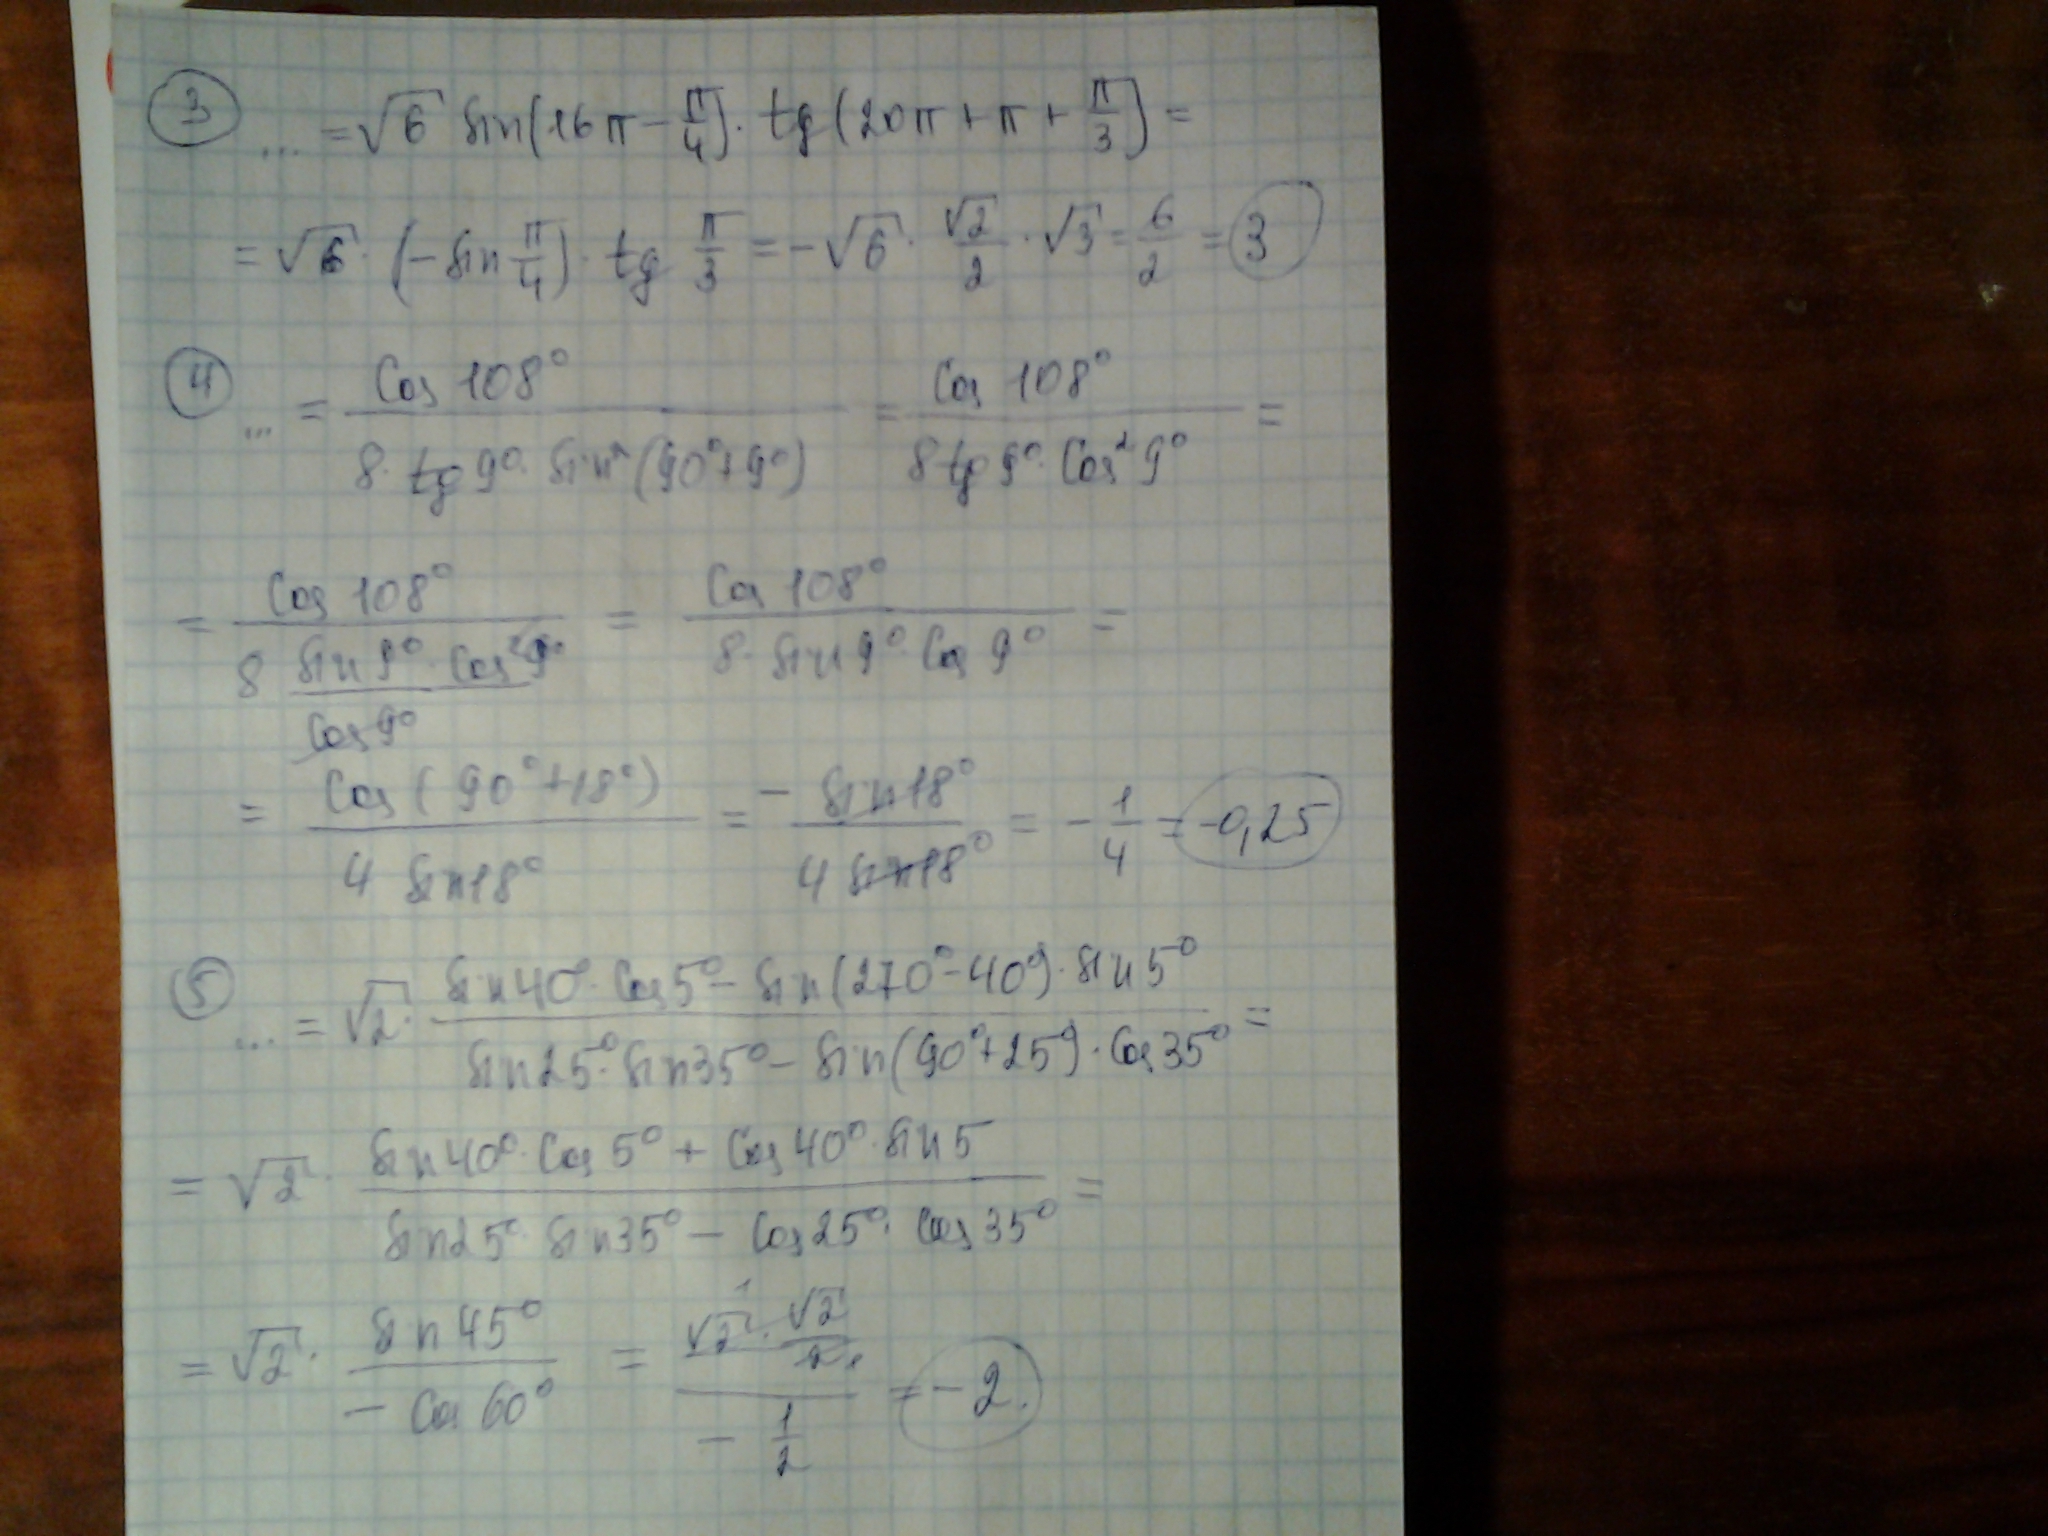 3 ... = √6 sin(16π − π/4) · tg(20π + π + π/3) =
= √6 · (−sin π/4) · tg π/3 = −√6 · √2/2 · √3 = 6/2 = 3
4 ... = cos 108° / (8 · tg 9° · sin²(90° + 9°)) = cos 108° / (8 tg 9° · cos² 9°) =
= cos 108° / (8 (sin 9° · cos² 9°) / cos 9°) = cos 108° / (8 · sin 9° · cos 9°) =
= cos(90° + 18°) / (4 sin 18°) = − sin 18° / (4 sin 18°) = − 1/4 = −0,25
5 ... = √2 · (sin 40° · cos 5° − sin(270° − 40°) · sin 5°) / (sin 25° · sin 35° − sin(90° + 25°) · cos 35°) =
= √2 · (sin 40° · cos 5° + cos 40° · sin 5) / (sin 25° · sin 35° − cos 25° · cos 35°) =
= √2 · sin 45° / (− cos 60°) = (√2 · √2/2) / (− 1/2) = −2.